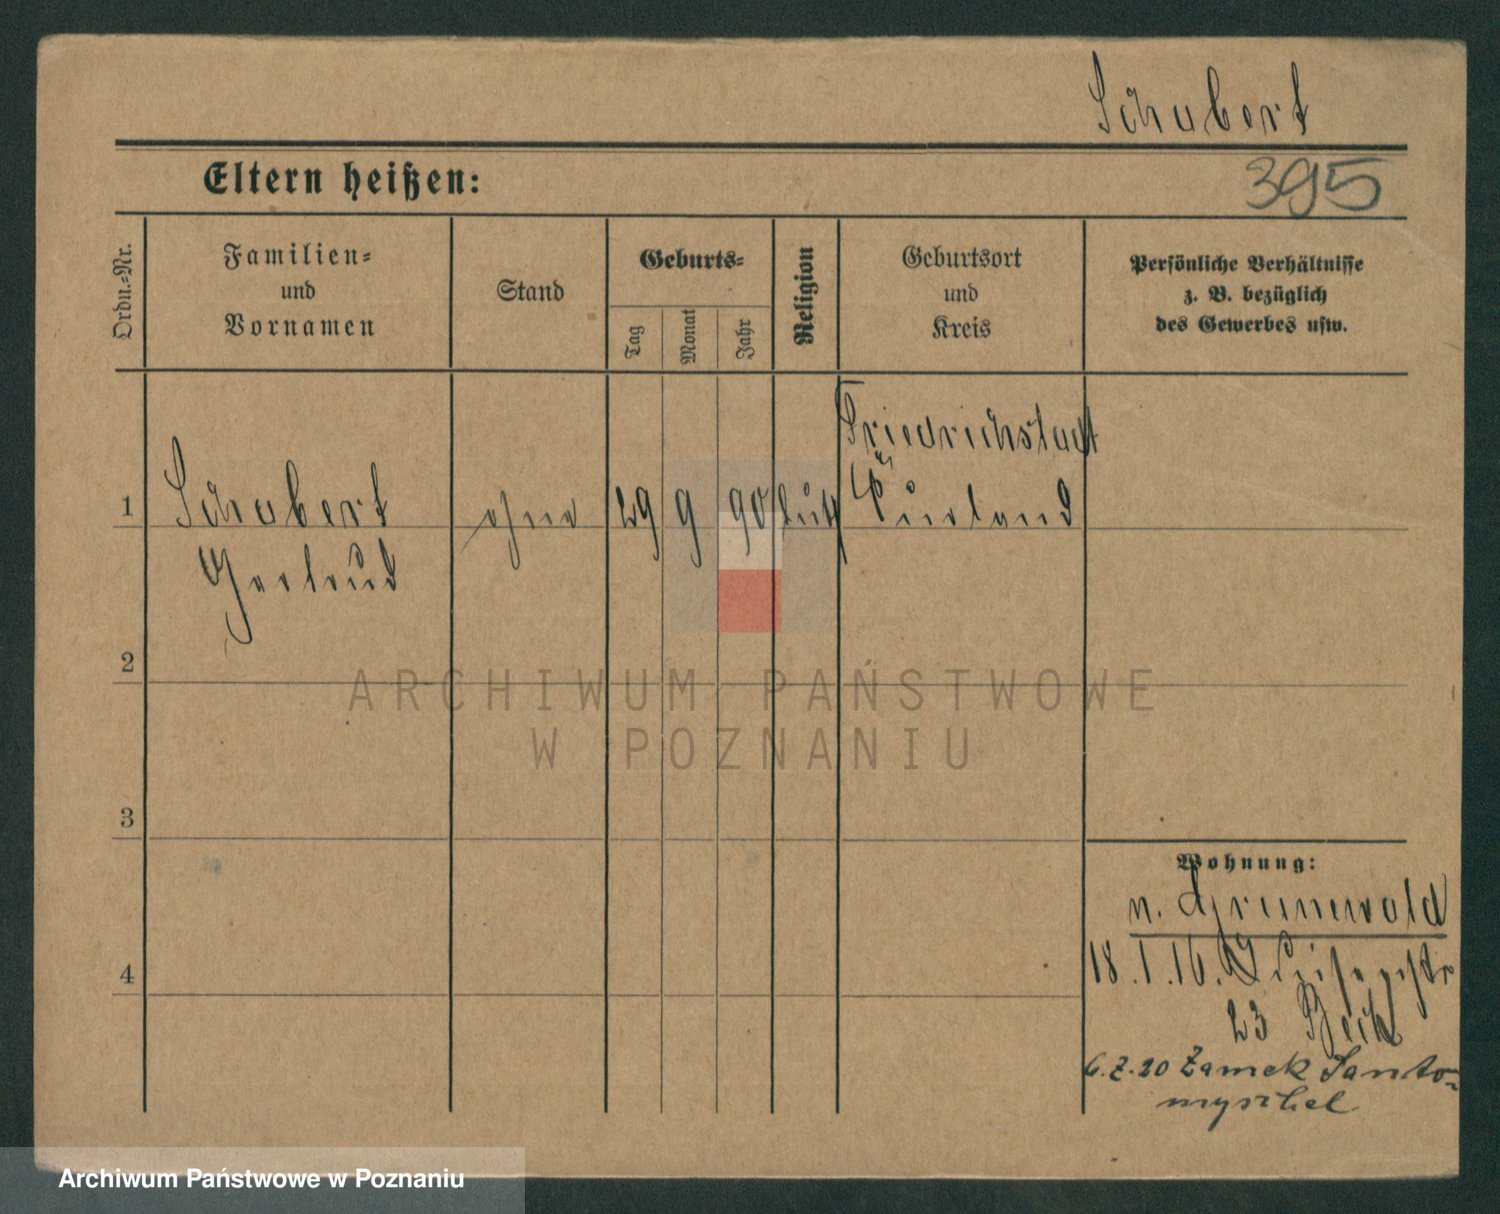 Schubert
Eltern heißen:
395
Ordn.-Nr.
Familien-
und
Vornamen
Stand
Geburts-
Tag
Monat
Jahr
Religion
Geburtsort
und
Kreis
Persönliche Verhältnisse
z. B. bezüglich
des Gewerbes usw.
Friedrichstadt
1
Schubert
ohne
29
9
90
luth
Kurland
Gertrud
2
3
4
Wohnung:
n. Grunewald
18.1.16. Luisenstr
23 Beck
6.2.20 Zamek Santo-
myschel
ARCHIWUM PAŃSTWOWE
W POZNANIU
Archiwum Państwowe w Poznaniu